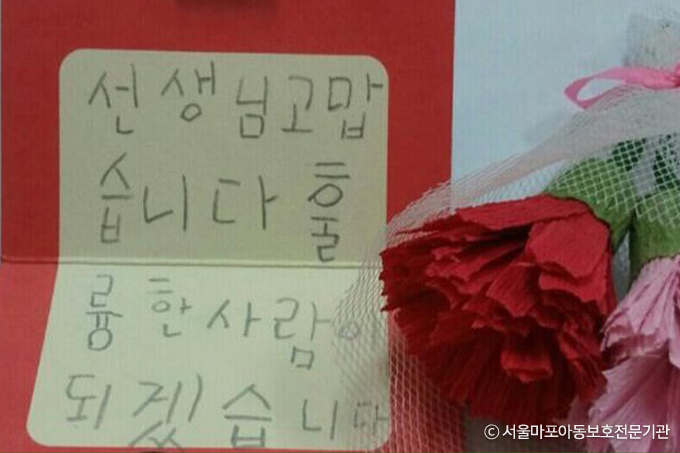 선생님고맙
습니다 훌
륭한사람이
되겠습니다
ⓒ 서울마포아동보호전문기관